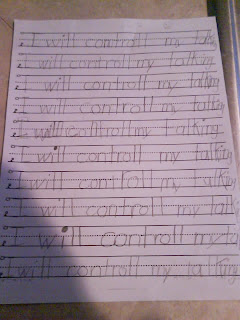 I will controll my talking
I will controll my talking
I will controll my talking
I will controll my talking
I will controll my talking
I will controll my talking
I will controll my talking
I will controll my talk
I will controll my ta
I will controll my talking